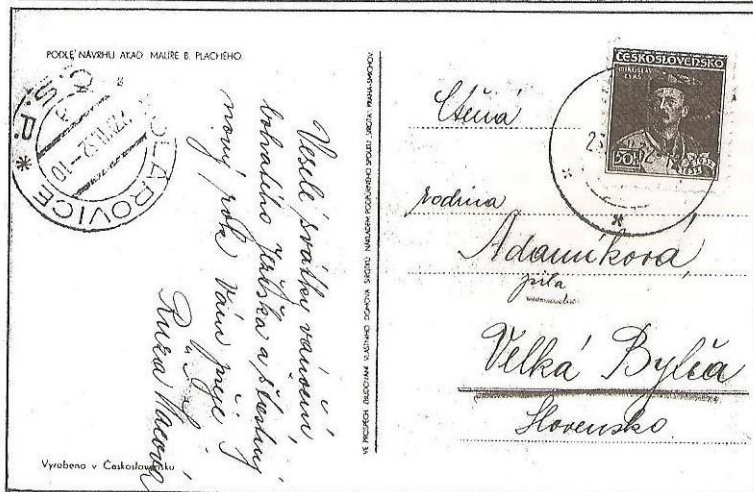 PODLE NÁVRHU AKAD MALÍŘE B. PLACHÉHO.
KOLÁROVICE
* Č.S.P. *
22.XII.32-10
Veselé svátky vánoční
bohatého Ježíška a šťastný
nový rok Vám přeje
Růža
Vyrobeno v Československu
VE PROSPĚCH ZBUDOVÁNÍ VLASTNÍHO DOMOVA SIROTKŮ NÁKLADEM PODPŮRNÉHO SPOLKU „SIROTA“ PRAHA-SMÍCHOV.
ČESKOSLOVENSKO
MIROSLAV
TYRŠ
50h
Ctěná
rodina
Adamíková,
pila
Velká Bytča
Slovensko